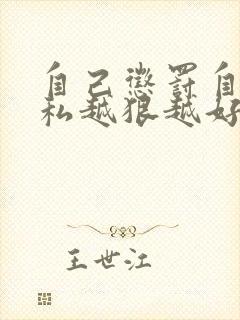 自己惩罚自
私越狠越好
王世江